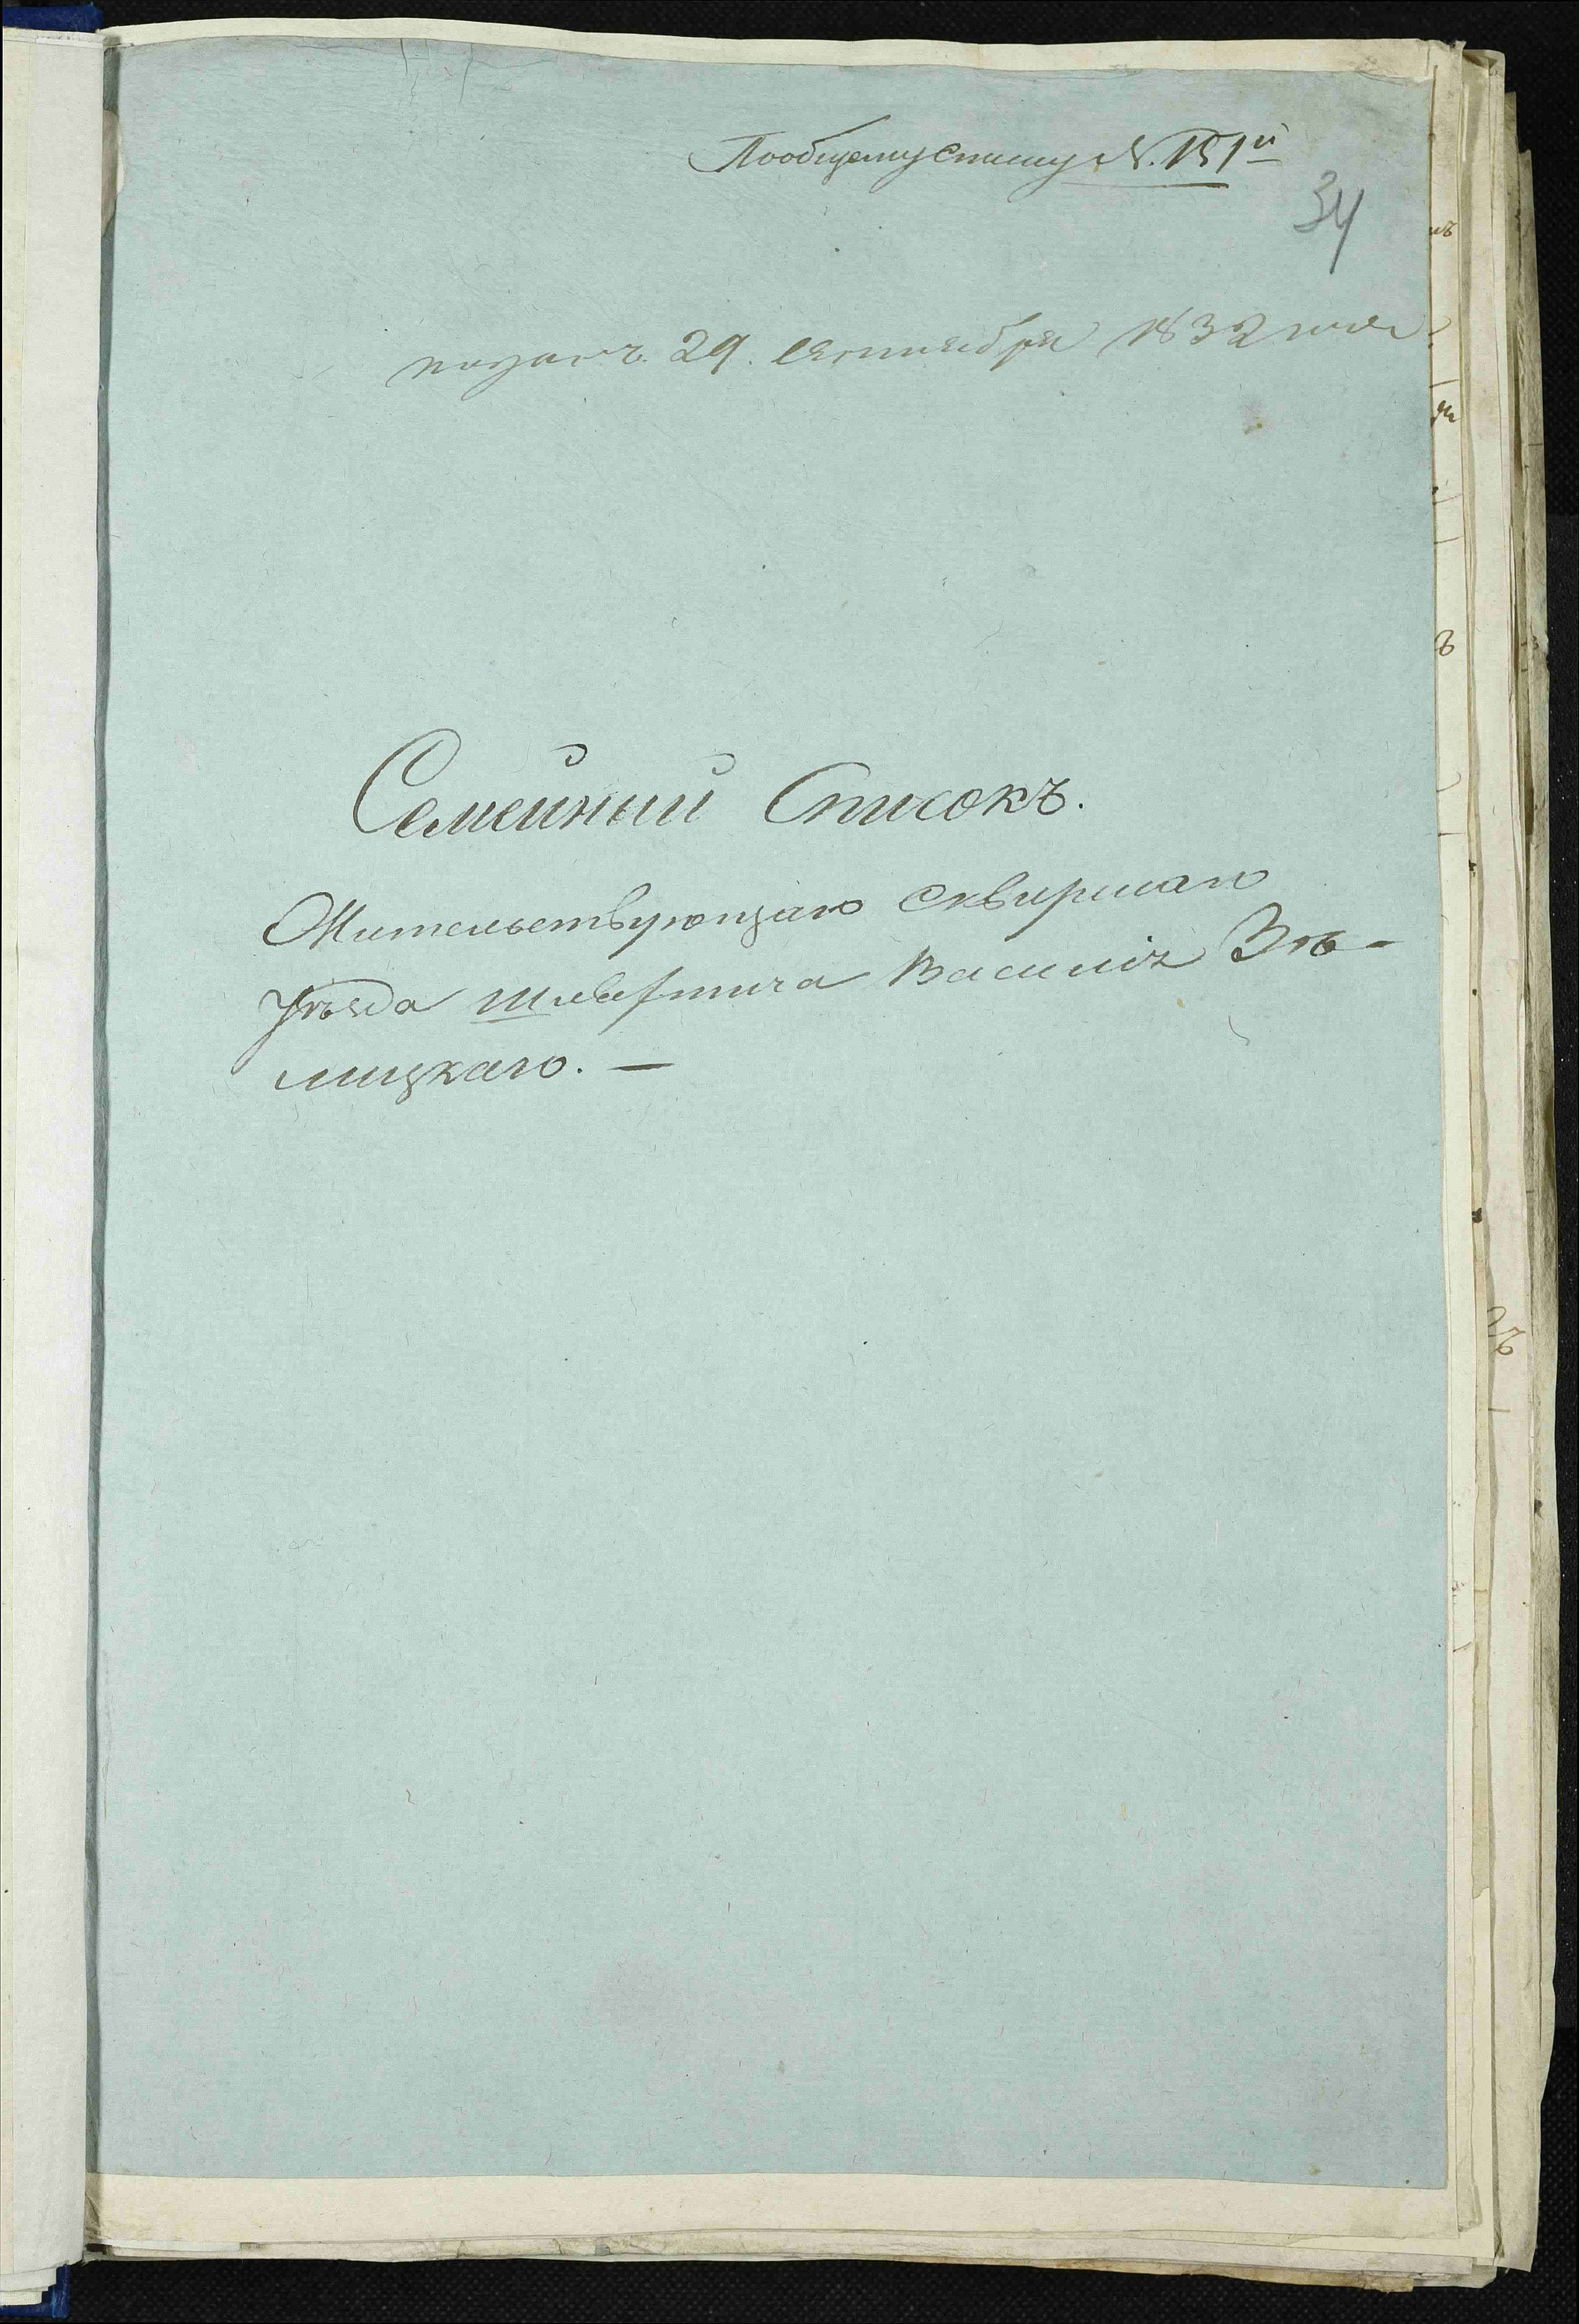 Пообщему списку №. 151й
34
поданъ 29. сентября 1832 года
Семейный Списокъ.
Жительствующаго Сквирскаго
Уѣзда шляхтича Василія Зѣ-
лицкаго. —